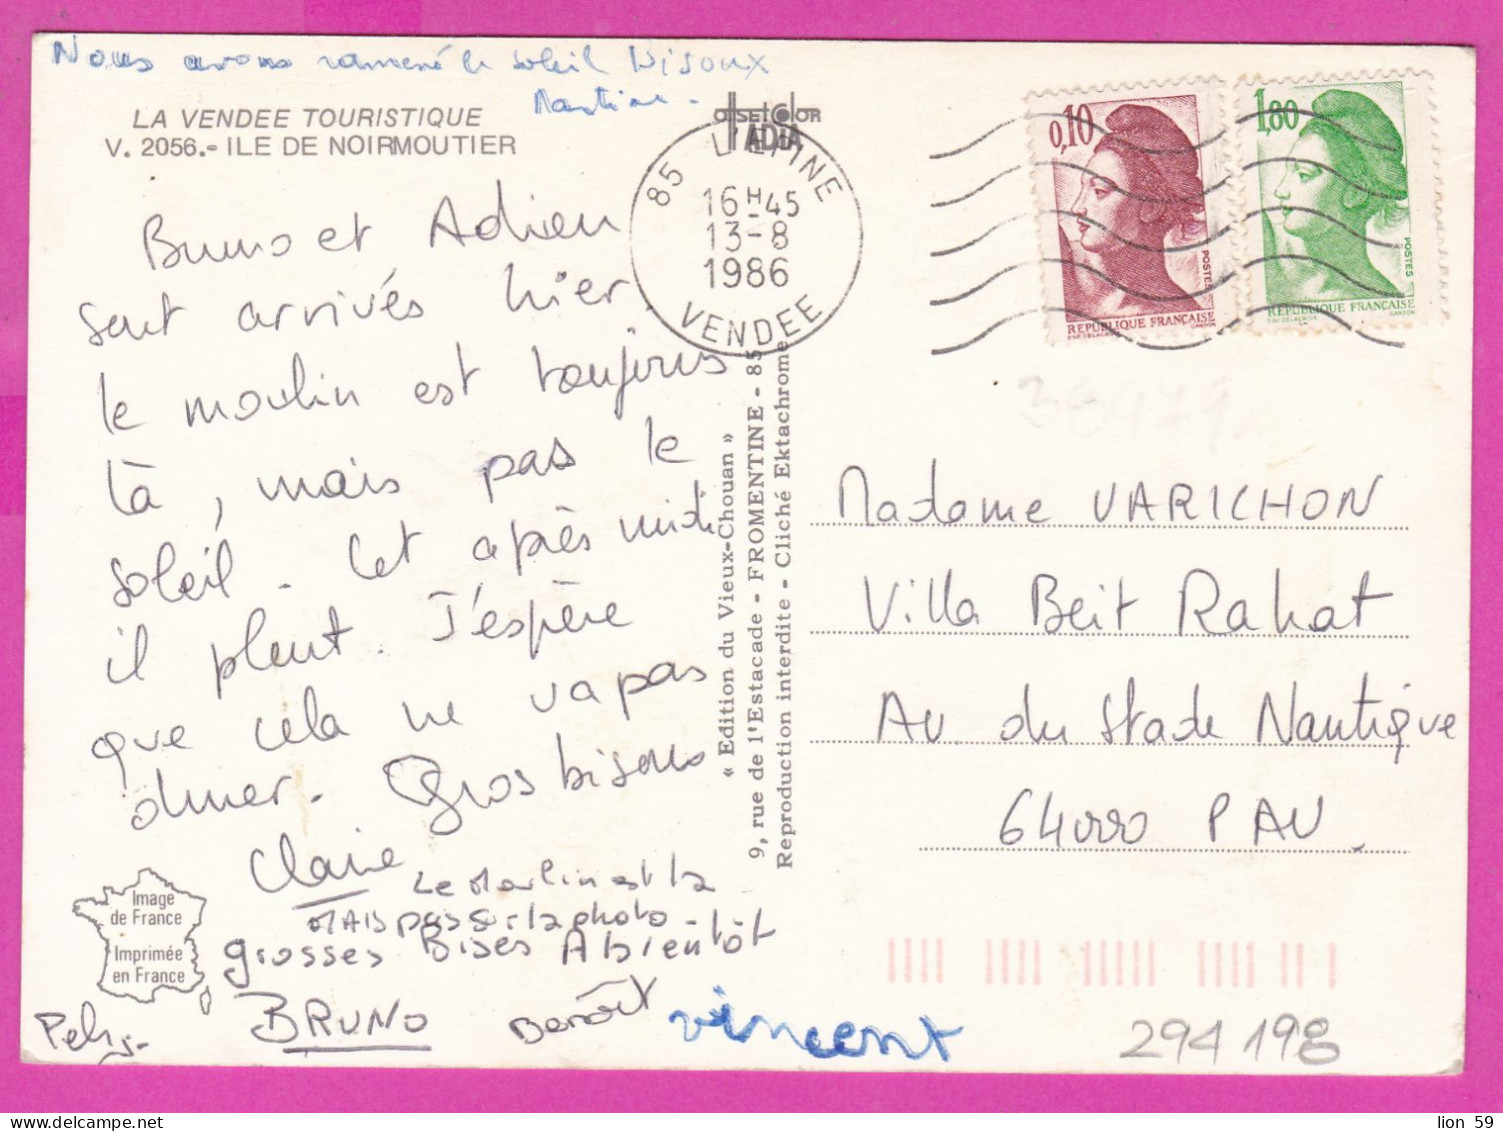 Nous avons ramené le soleil Bisoux
Martine -
LA VENDEE TOURISTIQUE
V. 2056.- ILE DE NOIRMOUTIER
OFFSETCOLOR
ADIA
Bruno et Adrien
sont arrivés hier,
le moulin est toujours
là, mais pas le
soleil. Cet après midi
il pleut. J'espère
que cela ne va pas
durer. Gros bisous
Claire
Le Moulin est la
MAIS pas sur la photo -
grosses Bises A bientôt
BRUNO Benoît vincent
Image
de France
Imprimée
en France
85 L'EPINE
16H45
13-8
1986
VENDEE
« Edition du Vieux-Chouan »
9, rue de l'Estacade - FROMENTINE - 85
Reproduction interdite - Cliché Ektachrome
0,10
POSTES
REPUBLIQUE FRANÇAISE
1,80
POSTES
REPUBLIQUE FRANÇAISE
Madame VARICHON
Villa Beit Rahat
Av. du Stade Nautique
64000 PAU.
294 198
lion 59